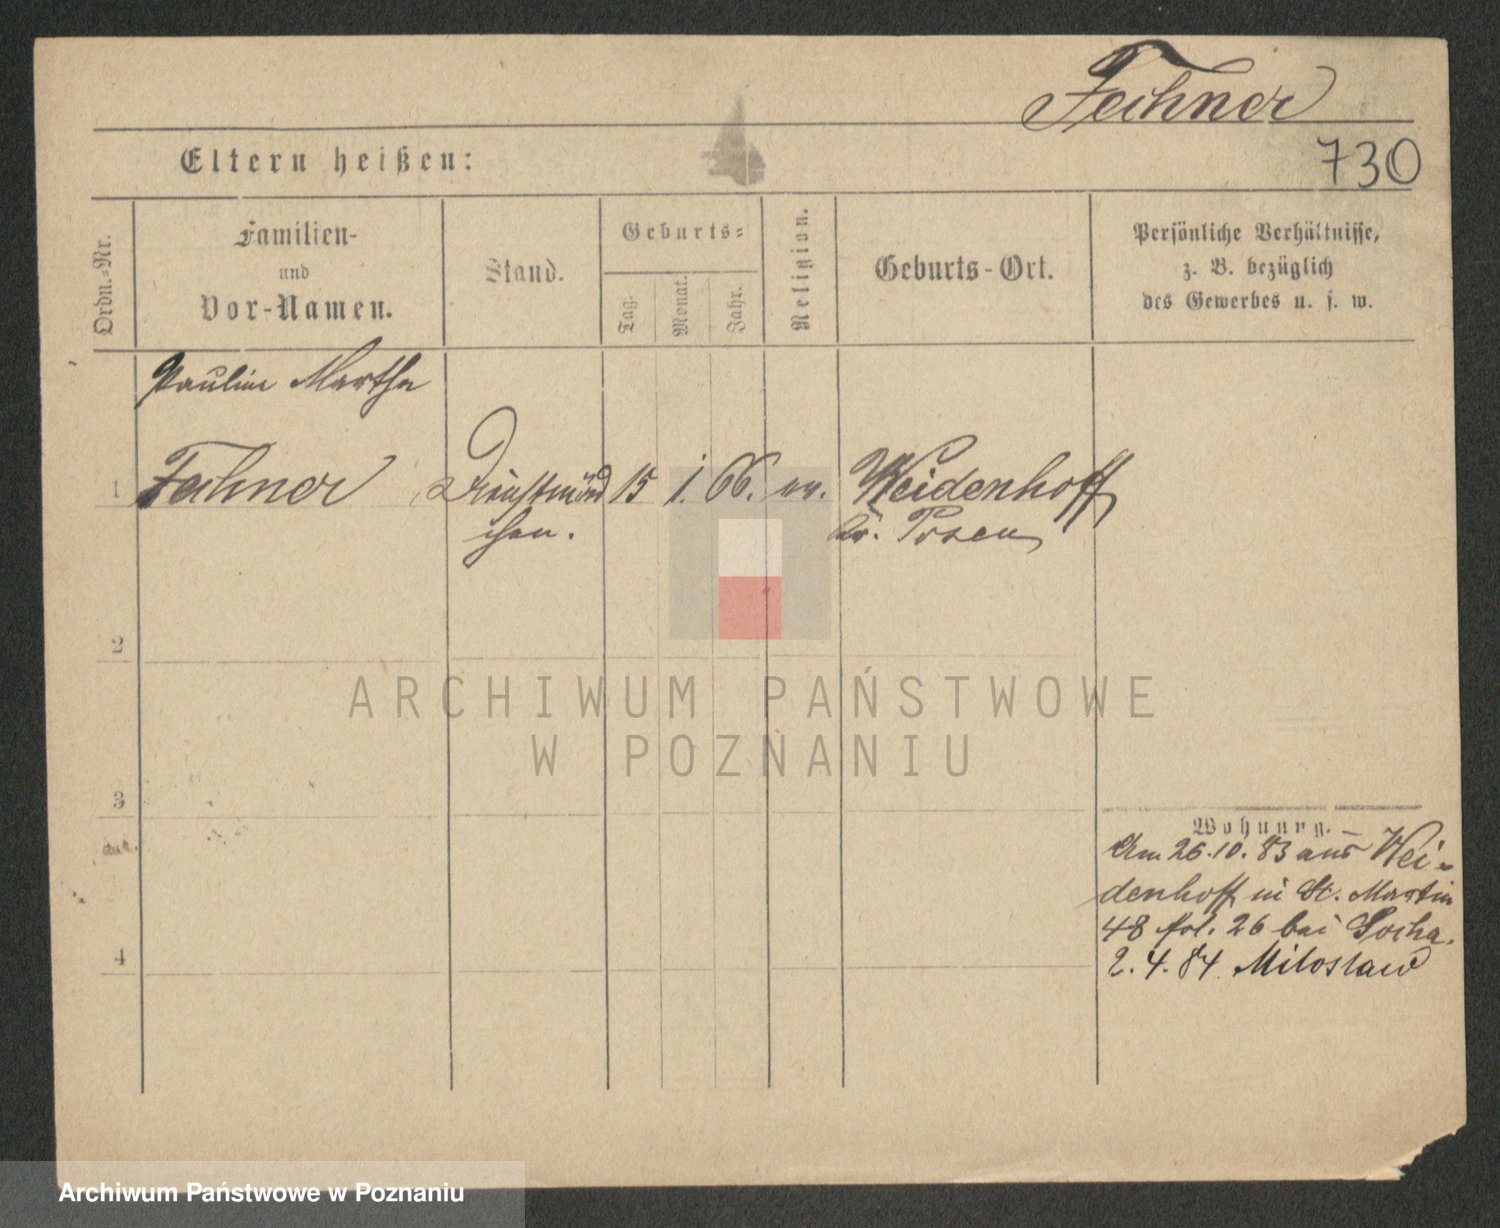 Fechner
730
Eltern heißen:
Ordn.-Nr.
Familien-
und
Vor-Namen.
Stand.
Geburts-
Tag.
Monat.
Jahr.
Religion.
Geburts-Ort.
Persönliche Verhältnisse,
z. B. bezüglich
des Gewerbes u. s. w.
Pauline Martha
1 Fechner Dienstmäd 15 1. 66. ev. Weidenhoff
chen. Kr. Posen
2
3
4
Wohnung.
Am 26.10.83 aus Wei-
denhoff in St. Martin
48 fol. 26 bei Socha.
2.4.84 Miloslaw
ARCHIWUM PAŃSTWOWE
W POZNANIU
Archiwum Państwowe w Poznaniu